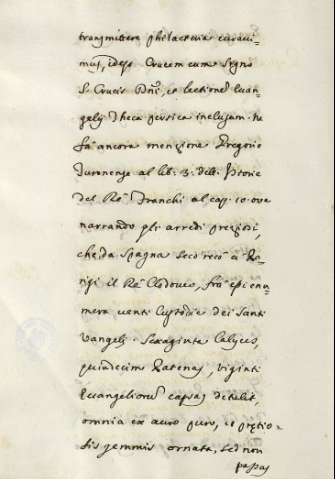 transmittere philacteria curavi-
mus, idest Crucem cum ligno
S. Crucis Dñi, et lectione Evan-
gelij Theca persica inclusam. ne
fà ancora menzione Gregorio
Turonense al lib. 3. delle Istorie
del Rè Franchi al cap. 10. ove
narrando gli arredi preziosi,
che da Spagna seco recò à Pa-
rigi il Rè Clodoveo, frà essi enu-
mera venti Custodie dei Santi
Vangelj. Sexaginta Calyces,
quindecim Patenas, viginti
Evangeliorum capsas detulit,
omnia ex auro puro, et prætio-
sis gemmis ornata, sed non
passus